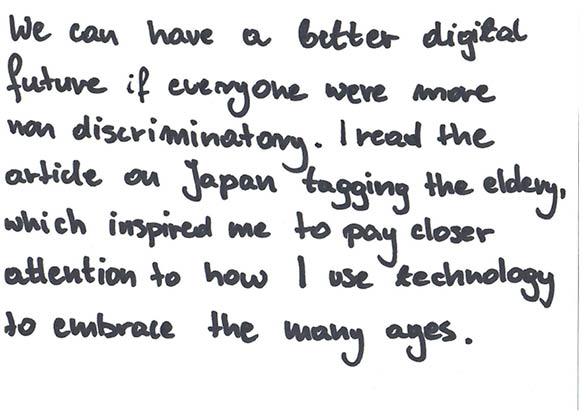 We can have a better digital
future if everyone were more
non discriminatory. I read the
article on Japan tagging the eldery,
which inspired me to pay closer
attention to how I use technology
to embrace the many ages.